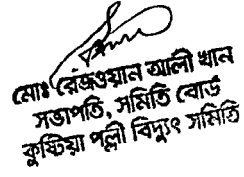 মোঃ রেজওয়ান আলী খান
সভাপতি, সমিতি বোর্ড
কুষ্টিয়া পল্লী বিদ্যুৎ সমিতি